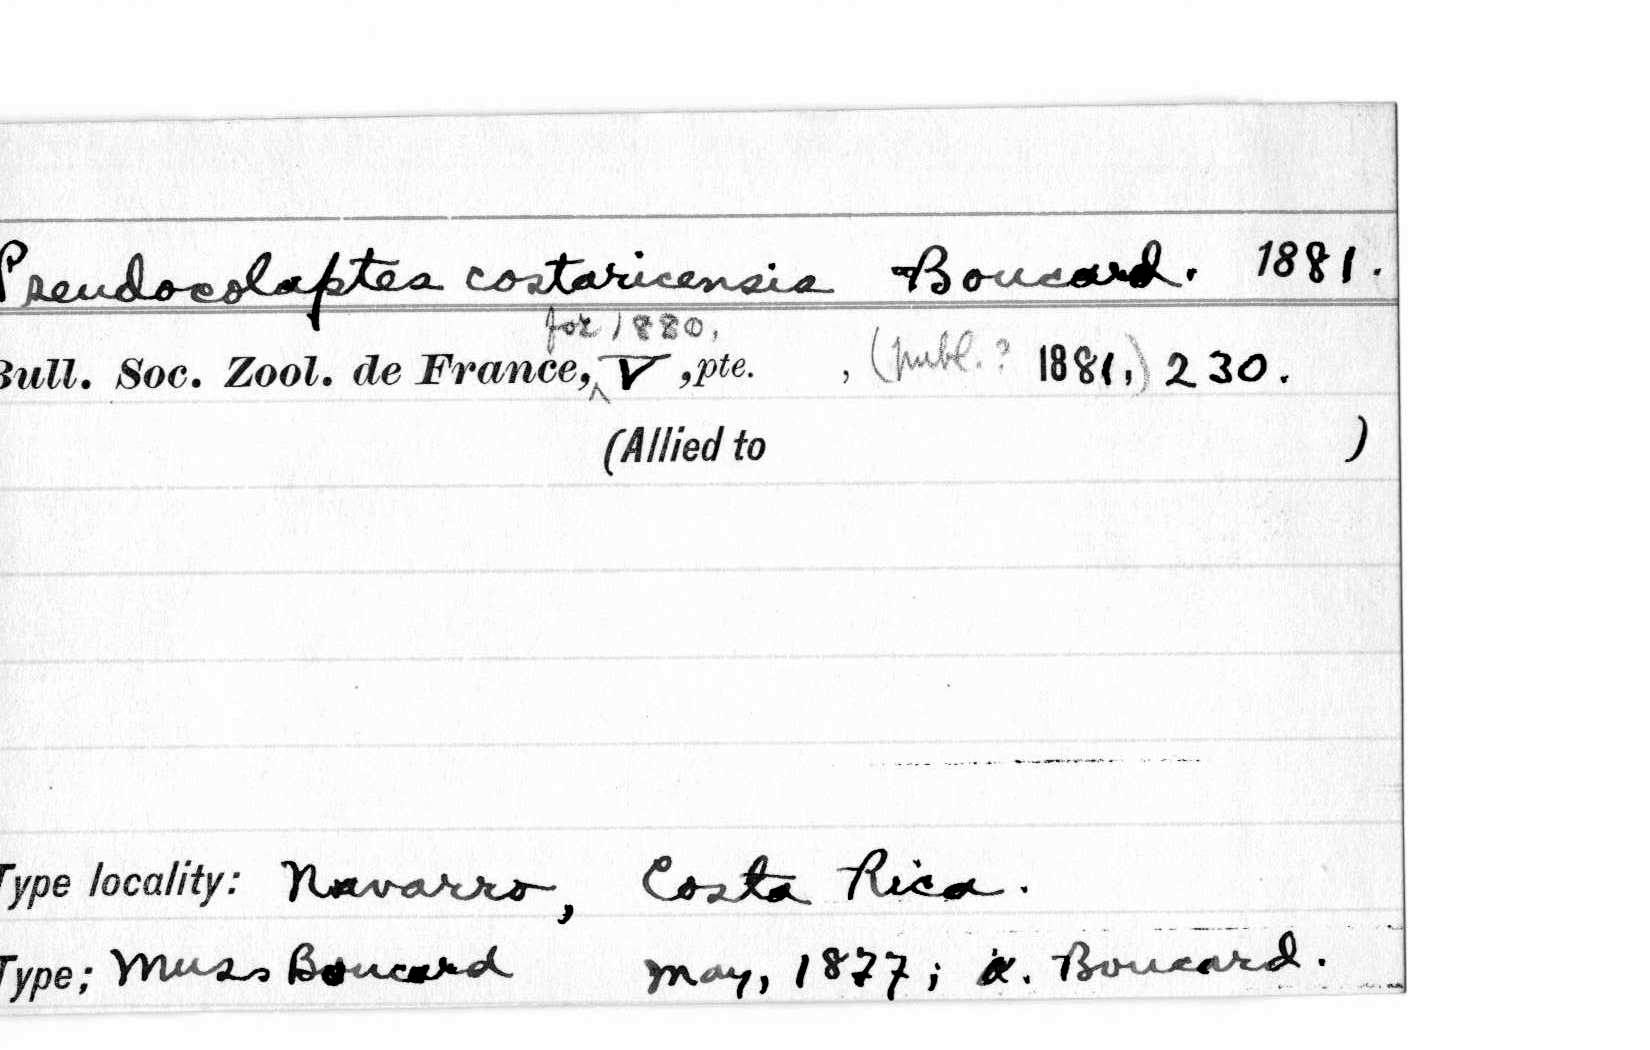 Pseudocolaptes costaricensis Boucard. 1881.
for 1880,
Bull. Soc. Zool. de France, V, pte. , (publ.? 1881,) 230.
(Allied to )
Type locality: Navarro, Costa Rica.
Type; Mus. Boucard May, 1877; A. Boucard.